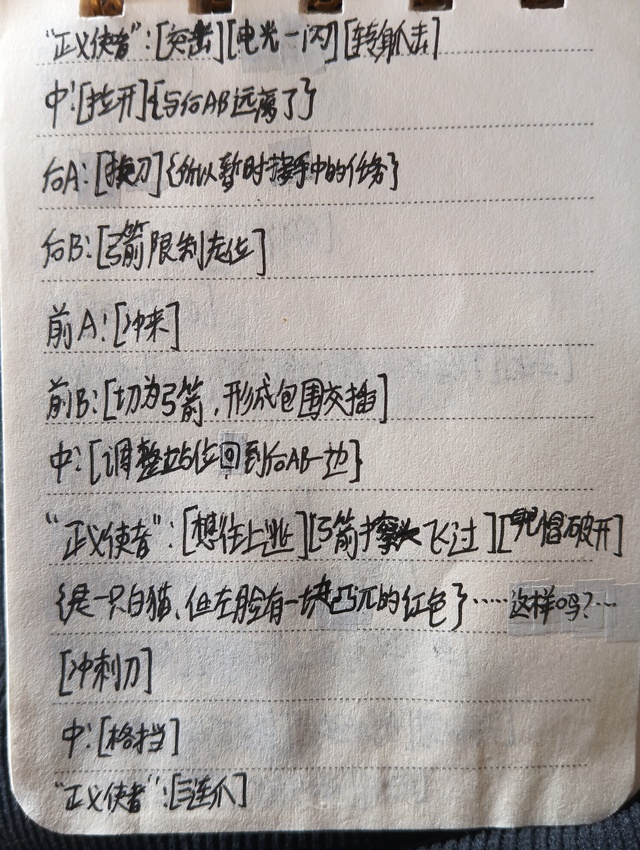 “正义使者”:[突击][电光一闪][转身爪击]
中:[拉开]{与后AB远离了}
后A:[换刀]{所以暂时接手中的任务}
后B:[弓箭限制走位]
前A:[冲来]
前B:[切为弓箭,形成包围交插]
中:[调整站位回到后AB一边}
“正义使者”:[想往上逃][弓箭擦头飞过][兜帽破开]
{是一只白猫、但左脸有一块凸兀的红色}……这样吗?…
[冲刺刀]
中:[格挡]
“正义使者”:[三连爪]